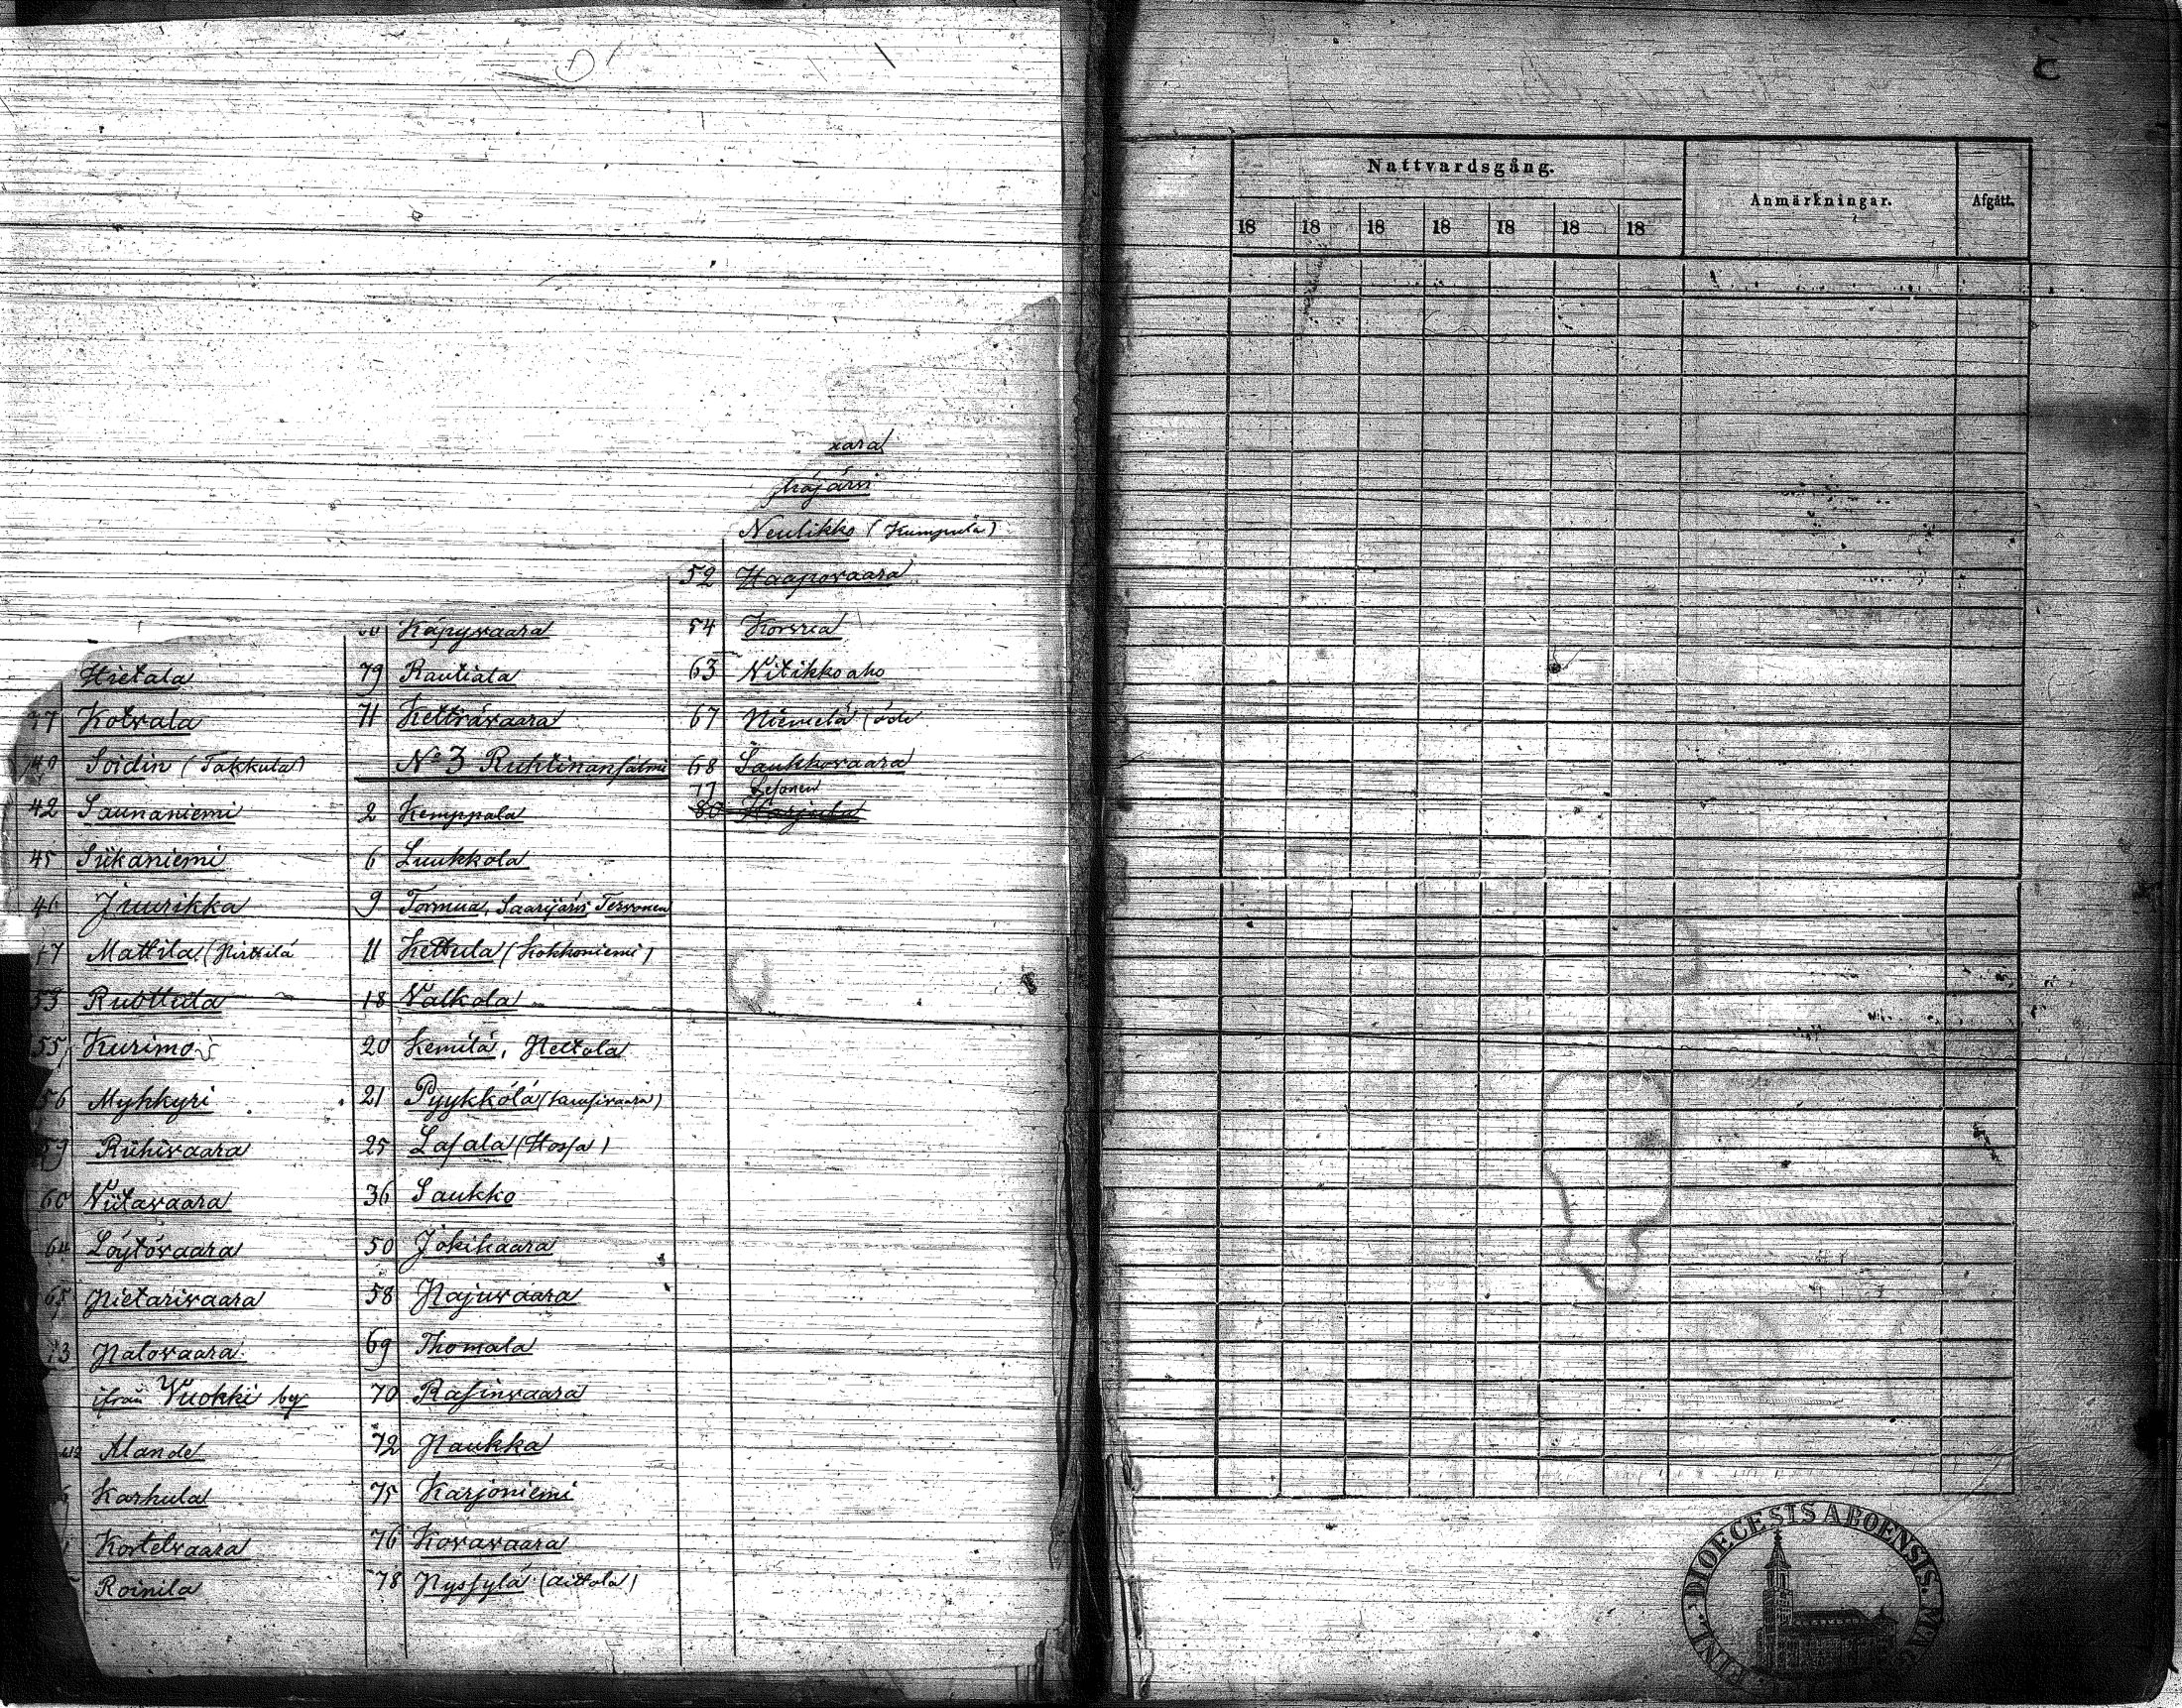 Hietala
37 Kotvala
40 Soidin (Takkula)
42 Saunaniemi
45 Siikaniemi
46 Juurikka
47 Mattila (Hirttilä
53 Ruottula
55 Kurimo
56 Myhkyri
59 Riihivaara
60 Viitavaara
64 Löytövaara
65 Hietarivaara
73 Halovaara
ifrån Vuokki by
Alande
Karhula
Kortelvaara
Roinila
Käpyvaara
79 Rautiala
71 Kettävaara
No 3 Ruhtinansalmi
2 Kemppala
6 Luukkola
9 Tormua, Saarijärvi Tervonen
11 Kettula (Kokkoniemi)
18 Valkola
20 Kemilä, Hettola
21 Pyykkölä
25 Lasala (Hossa)
36 Saukko
50 Jokikaara
58 Hajuvaara
69 Thomala
70 Rasinvaara
72 Haukka
75 Karjoniemi
76 Kovavaara
78 Hyssylä (Aittola)
vaara
kajärvi
Neulikko (Kumpula)
52 Haapovaara
54 Korvua
63 Vitikkoaho
67 Niemelä (öde
68 Saukkovaara
77 Lesonen
80 Harjula
Nattvardsgång.
Anmärkningar.
Afgått.
18 18 18 18 18 18 18
DIOECESIS ABOENSIS. MA
FINL.